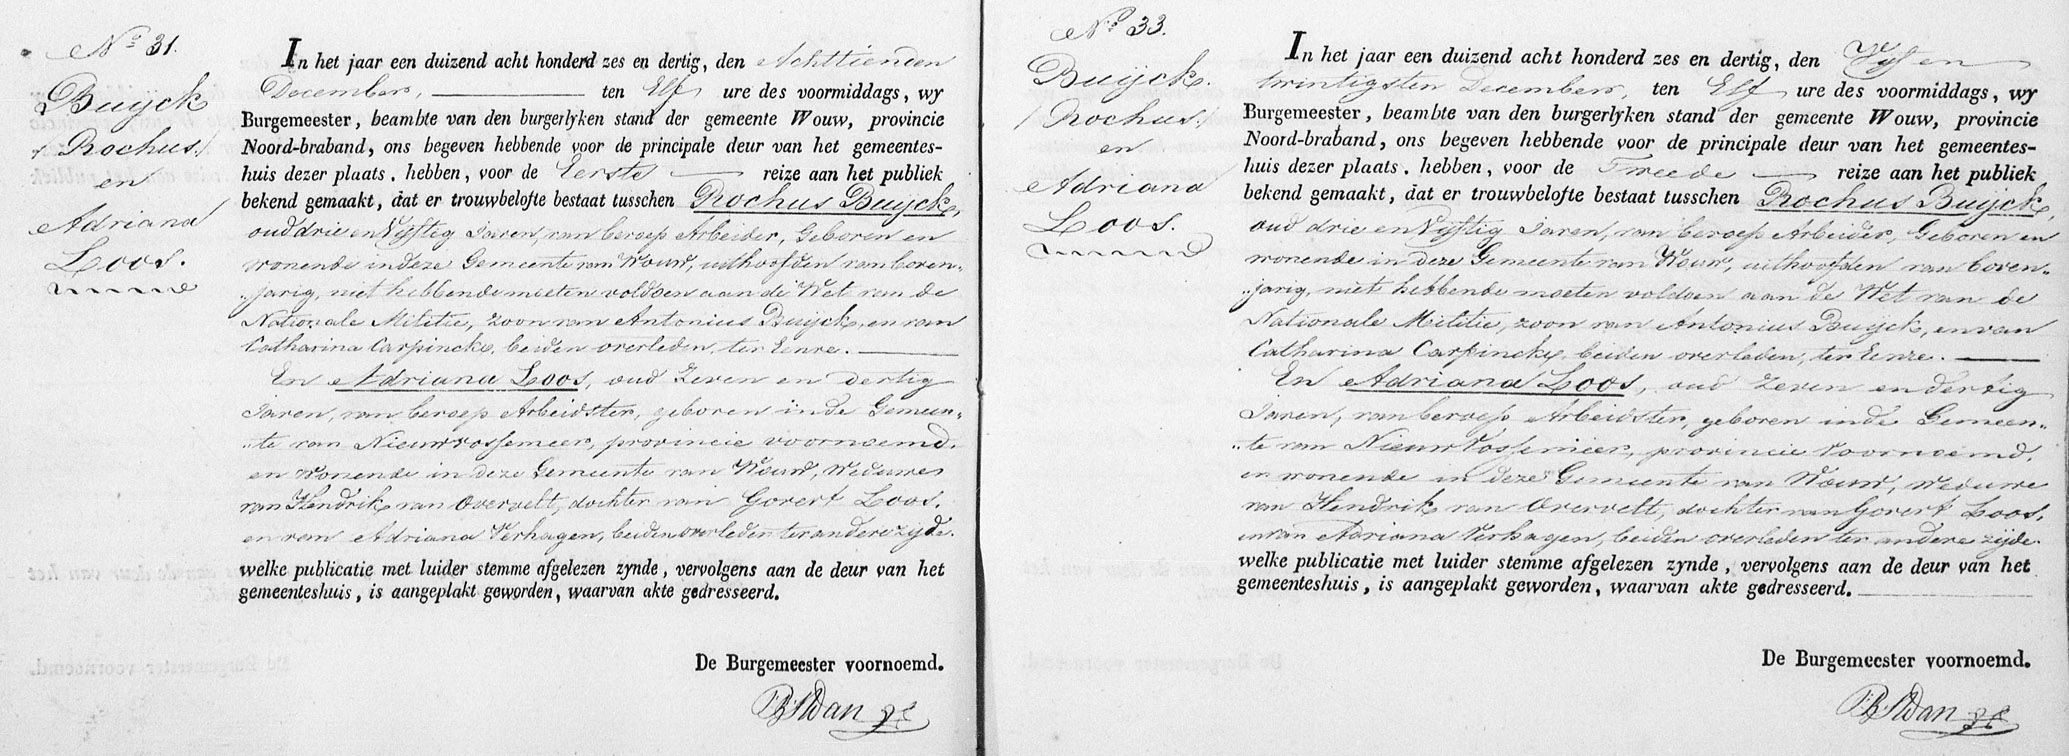 No 31.
Buÿck
/ Rochus /
en
Adriana
Loos.
In het jaar een duizend acht honderd zes en dertig, den Achttienden
December, ten Elf ure des voormiddags, wy
Burgemeester, beambte van den burgerlyken stand der gemeente Wouw, provincie
Noord-braband, ons begeven hebbende voor de principale deur van het gemeentes-
huis dezer plaats. hebben, voor de Eerste reize aan het publiek
bekend gemaakt, dat er trouwbelofte bestaat tusschen Rochus Buÿck,
oud drie en Vijftig Jaren, van beroep Arbeider, Geboren en
wonende in deze Gemeente van Wouw, uithoofden van boven„
„jarig, niet hebbende moeten voldoen aan de Wet van de
Nationale Militie, zoon van Antonius Buÿck, en van
Catharina Carpinck, beiden overleden, ter Eenre.
En Adriana Loos, oud Zeven en dertig
Jaren, van beroep Arbeidster, geboren in de Gemeen„
„te van Nieuwvossemeer, provincie voornoemd.
en wonende in deze Gemeente van Wouw, weduwe
van Hendrik van Overvelt, dochter van Govert Loos.
en van Adriana Verhagen, beiden overleden ter andere zijde.
welke publicatie met luider stemme afgelezen zynde, vervolgens aan de deur van het
gemeenteshuis, is aangeplakt geworden, waarvan akte gedresseerd.
De Burgemeester voornoemd.
No 33.
Buÿck.
/ Rochus /
en
Adriana
Loos.
In het jaar een duizend acht honderd zes en dertig, den Vijf en
twintigsten December, ten Elf ure des voormiddags, wy
Burgemeester, beambte van den burgerlyken stand der gemeente Wouw, provincie
Noord-braband, ons begeven hebbende voor de principale deur van het gemeentes-
huis dezer plaats. hebben, voor de Tweede reize aan het publiek
bekend gemaakt, dat er trouwbelofte bestaat tusschen Rochus Buÿck,
oud drie en Vijftig Jaren, van beroep Arbeider, Geboren en
wonende in deze Gemeente van Wouw, uithoofden van boven„
„jarig, niet hebbende moeten voldoen aan de Wet van de
Nationale Militie, zoon van Antonius Buÿck, en van
Catharina Carpinck, beiden overleden, ter Eenre.
En Adriana Loos, oud Zeven en dertig
Jaren, van beroep Arbeidster, geboren in de Gemeen„
„te van Nieuw Vossemeer, provincie voornoemd.
en wonende in deze Gemeente van Wouw, weduwe
van Hendrik van Overvelt, dochter van Govert Loos,
en van Adriana Verhagen, beiden overleden ter andere zijde.
welke publicatie met luider stemme afgelezen zynde, vervolgens aan de deur van het
gemeenteshuis, is aangeplakt geworden, waarvan akte gedresseerd.
De Burgemeester voornoemd.